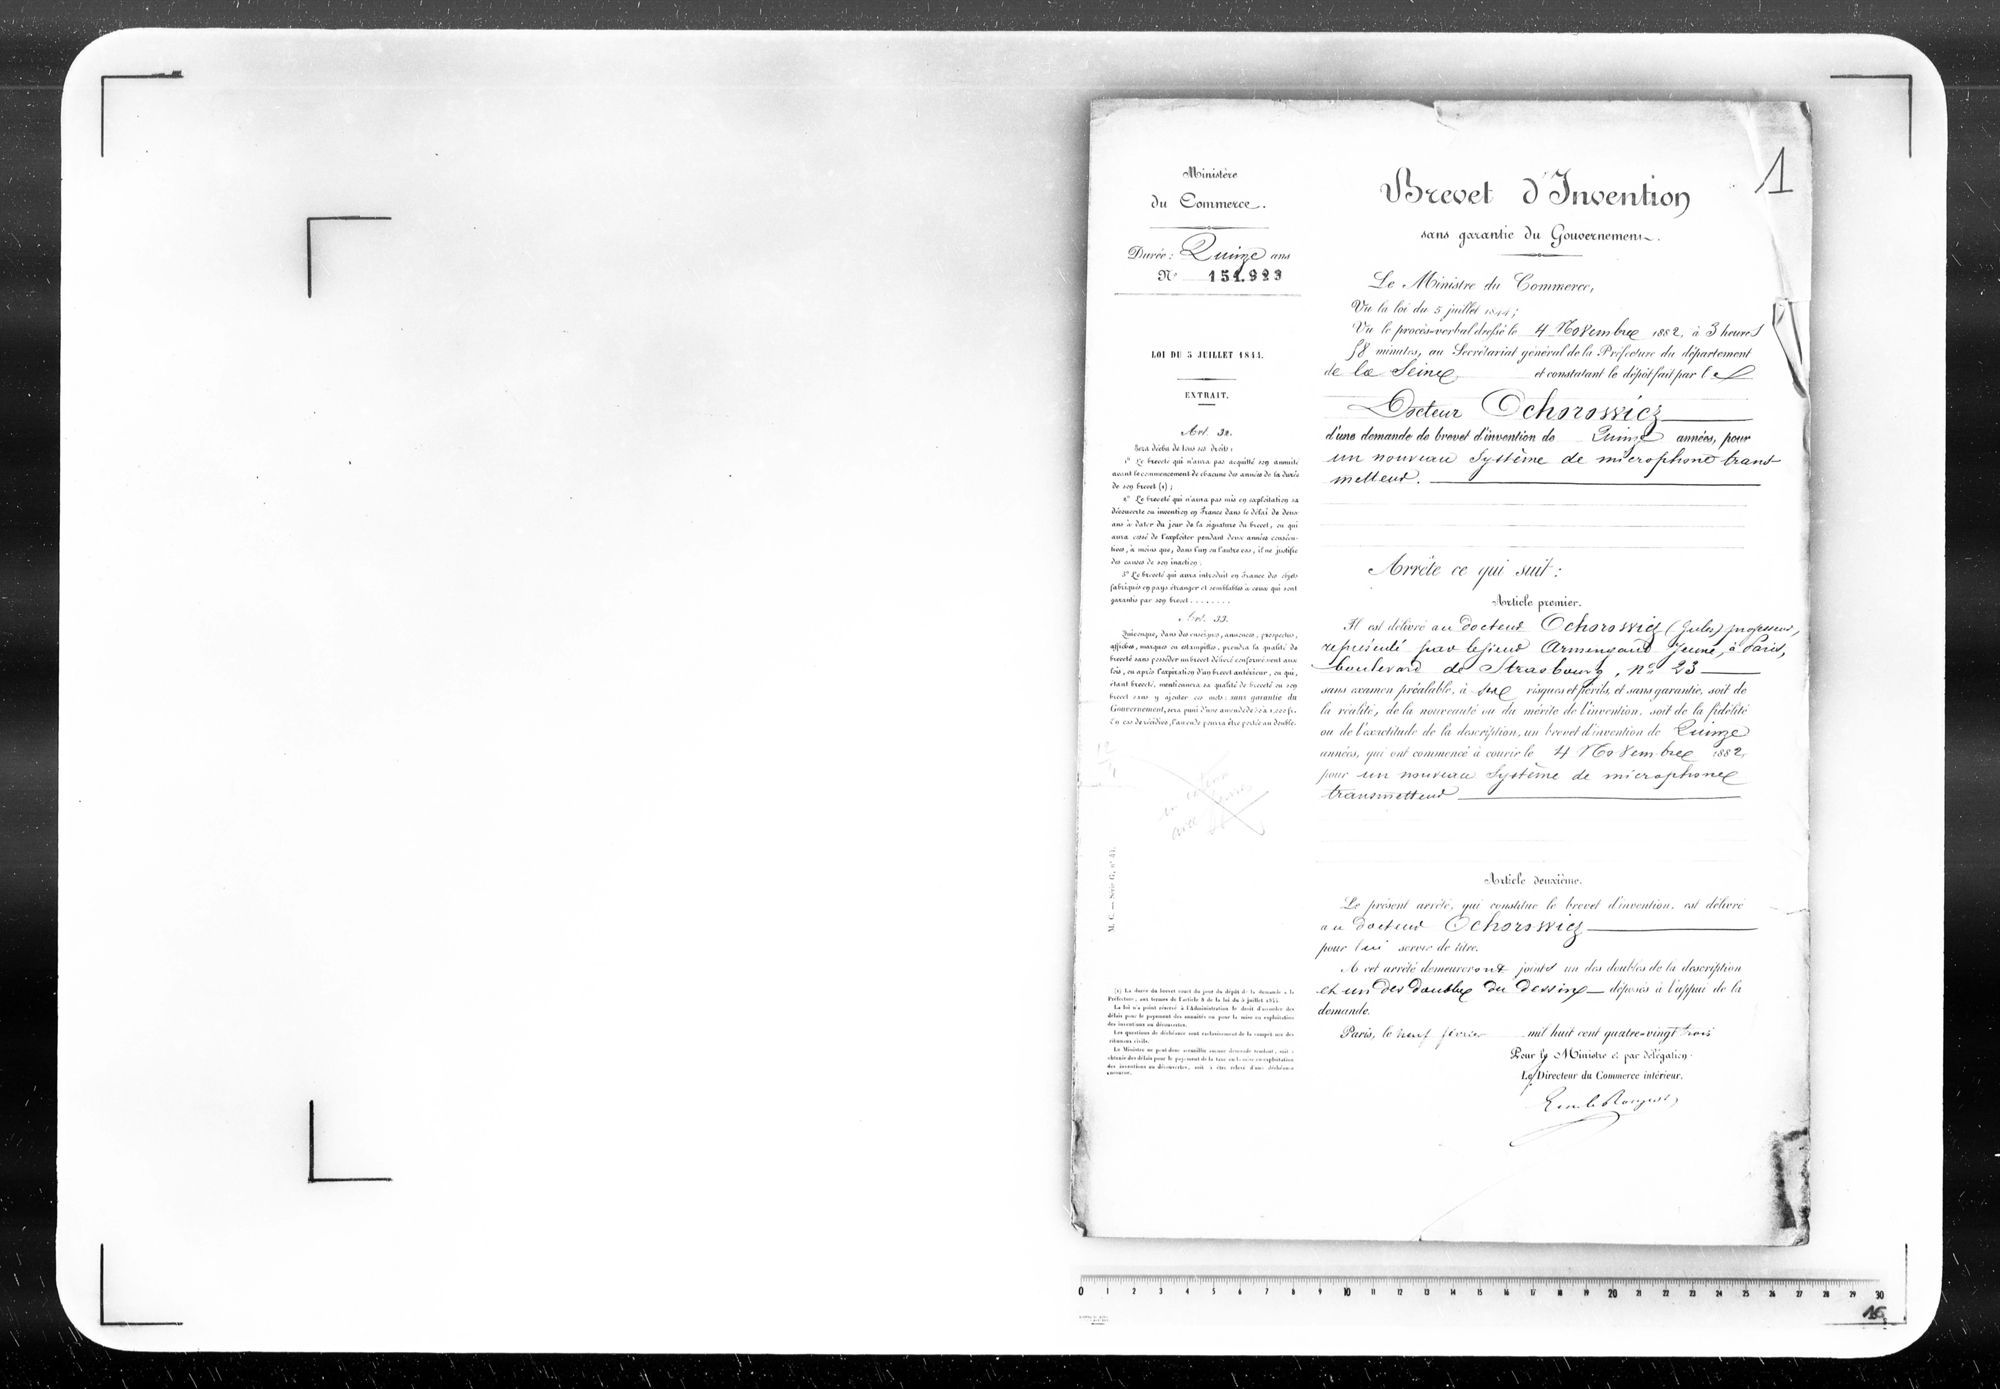 1
Ministère
du Commerce.
Durée : Quinze ans
N° 151.923
LOI DU 5 JUILLET 1844.
EXTRAIT.
Art. 32.
Sera déchu de tous ses droits :
1° Le breveté qui n'aura pas acquitté son annuité
avant le commencement de chacune des années de la durée
de son brevet (1) ;
2° Le breveté qui n'aura pas mis en exploitation sa
découverte ou invention en France dans le délai de deux
ans à dater du jour de la signature du brevet, ou qui
aura cessé de l'exploiter pendant deux années consécu-
tives, à moins que, dans l'un ou l'autre cas, il ne justifie
des causes de son inaction ;
3° Le breveté qui aura introduit en France des objets
fabriqués en pays étranger et semblables à ceux qui sont
garantis par son brevet........
Art. 33.
Quiconque, dans des enseignes, annonces, prospectus,
affiches, marques ou estampilles, prendra la qualité de
breveté sans posséder un brevet délivré conformément aux
lois, ou après l'expiration d'un brevet antérieur, ou qui,
étant breveté, mentionnera sa qualité de breveté ou son
brevet sans y ajouter ces mots : sans garantie du
Gouvernement, sera puni d'une amende de 50 à 1,000 fr.
En cas de récidive, l'amende pourra être portée au double.
avec
M. C. — Série G, n°
(1) La durée du brevet court du jour du dépôt de la demande à la
Préfecture, aux termes de l'article 8 de la loi du 5 juillet 1844.
La loi n'a point réservé à l'Administration le droit d'accorder des
délais pour le payement des annuités ou pour la mise en exploitation
des inventions ou découvertes.
Les questions de déchéance sont exclusivement de la compétence des
tribunaux civils.
Le Ministre ne peut donc accueillir aucune demande tendant, soit à
obtenir des délais pour le payement de la taxe ou la mise en exploitation
des inventions ou découvertes, soit à être relevé d'une déchéance
encourue.
Brevet d'Invention
sans garantie du Gouvernement.
Le Ministre du Commerce,
Vu la loi du 5 juillet 1844 ;
Vu le procès-verbal dressé le 4 Novembre 1882, à 3 heures
58 minutes, au Secrétariat général de la Préfecture du département
de la Seine et constatant le dépôt fait par le
Docteur Ochorowicz
d'une demande de brevet d'invention de Quinze années, pour
un nouveau système de microphone trans-
metteur.
Arrête ce qui suit :
Article premier.
Il est délivré au docteur Ochorowicz (Jules) professeur,
représenté par le sieur Armengaud jeune, à Paris,
boulevard de Strasbourg, n° 23
sans examen préalable, à ses risques et périls, et sans garantie, soit de
la réalité, de la nouveauté ou du mérite de l'invention, soit de la fidélité
ou de l'exactitude de la description, un brevet d'invention de Quinze
années, qui ont commencé à courir le 4 Novembre 1882,
pour un nouveau système de microphone
transmetteur
Article deuxième.
Le présent arrêté, qui constitue le brevet d'invention, est délivré
au docteur Ochorowicz
pour lui servir de titre.
A cet arrêté demeureront joints un des doubles de la description
et un des doubles du dessin déposés à l'appui de la
demande.
Paris, le neuf février mil huit cent quatre-vingt trois
Pour le Ministre et par délégation.
Le Directeur du Commerce intérieur.
0 1 2 3 4 5 6 7 8 9 10 11 12 13 14 15 16 17 18 19 20 21 22 23 24 25 26 27 28 29 30